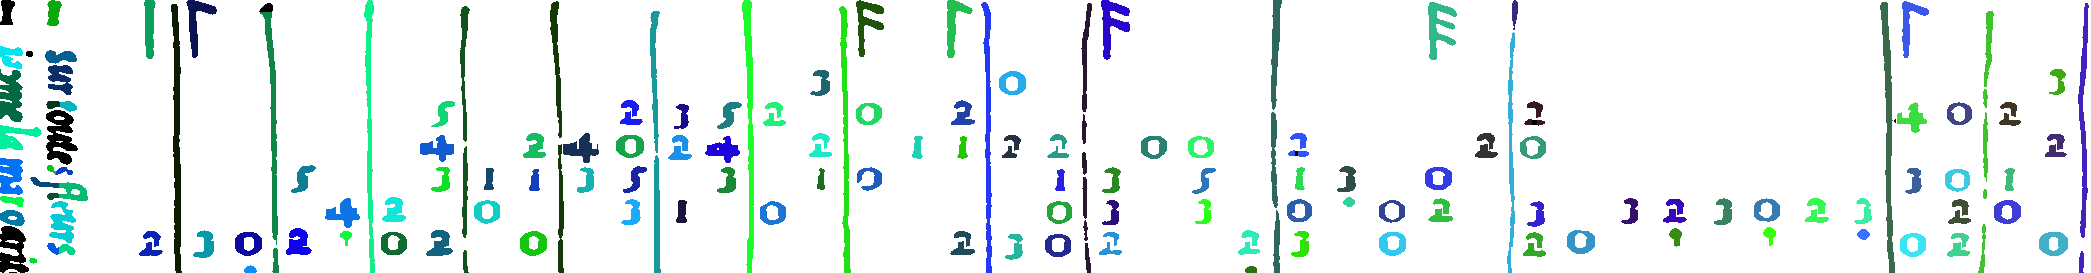 sur toutes fleurs
iayme la margarit
3 0 3
5 2 3 5 2 0 2 2 4 0 2
4 2 4 0 2 4 2 1 1 2 2 0 0 2 2 0 2
5 3 1 1 3 5 3 1 0 1 3 5 1 3 0 3 0 1
4 2 0 3 1 0 0 3 3 0 0 2 3 3 2 3 0 2 3 2 0
2 3 0 2 0 2 0 2 3 0 2 2 3 0 2 0 0 2 0